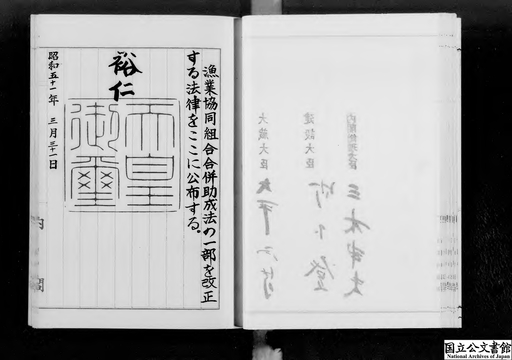 漁業協同組合合併助成法の一部を改正
する法律をここに公布する。
裕仁
天皇
御璽
昭和五十一年 三月三十一日
内閣
内閣総理大臣
三木
建設大臣
竹下登
大蔵大臣
大平正芳
国立公文書館
National Archives of Japan